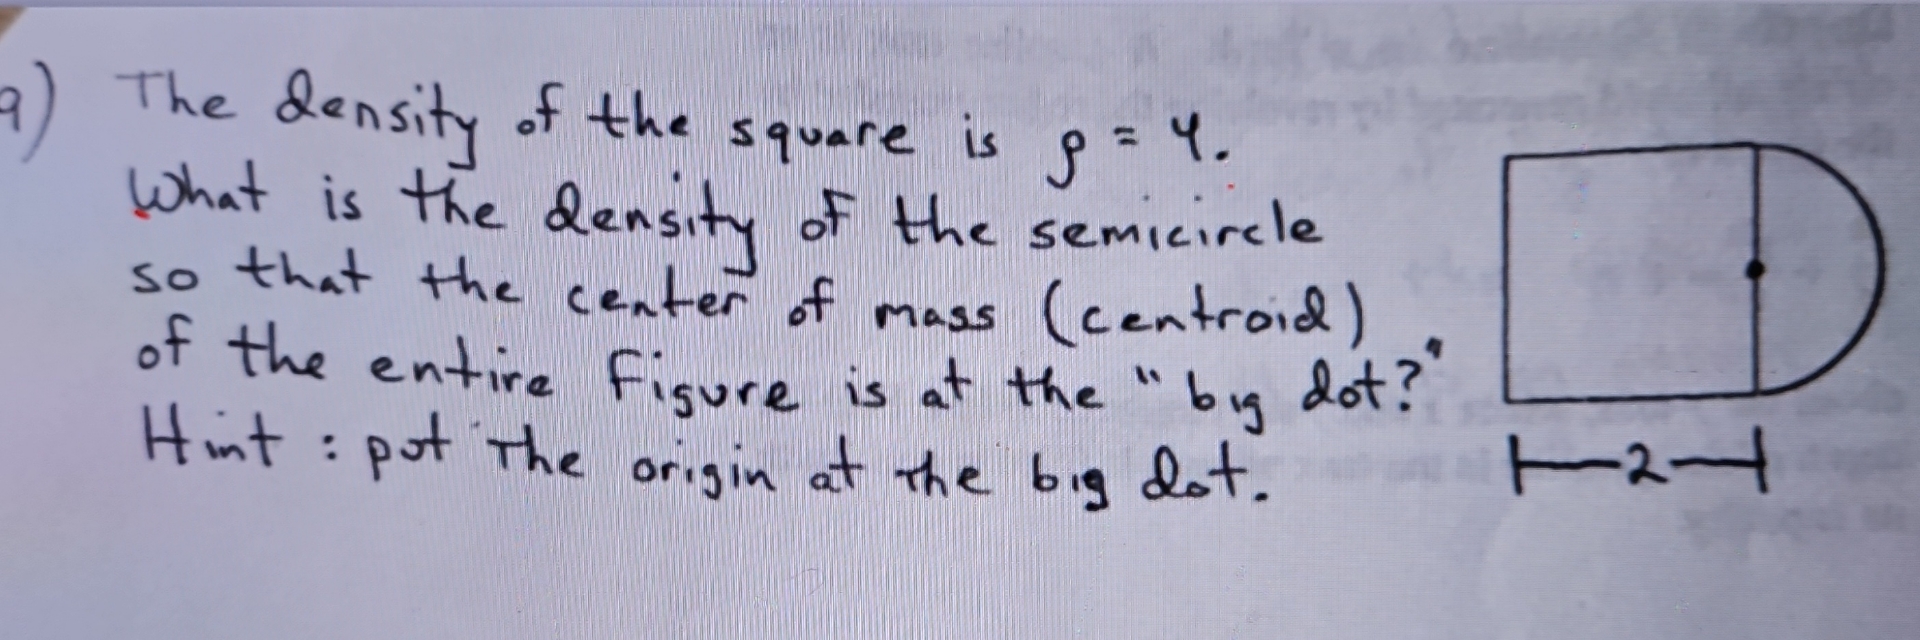 9) The density of the square is ρ = 4.
What is the density of the semicircle
so that the center of mass (centroid)
of the entire figure is at the "big dot?"
Hint : put the origin at the big dot.
2